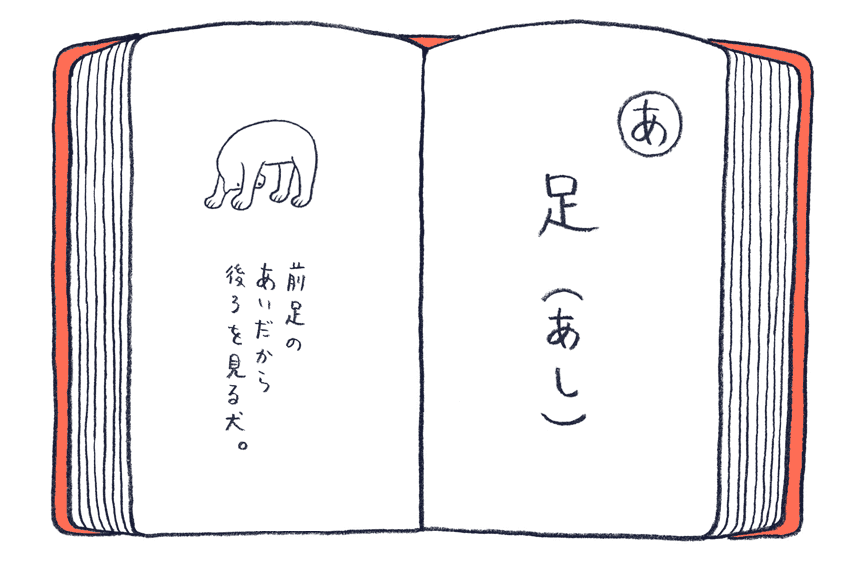 あ
足（あし）
前足の
あいだから
後ろを見る犬。